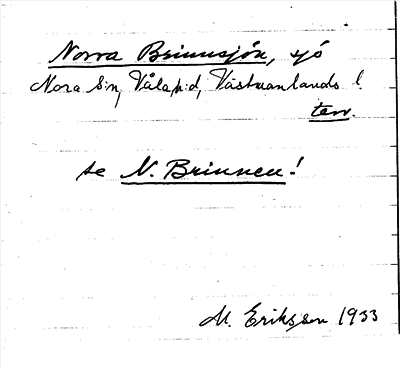 Norra Brinnsjön, sjö
Nora sn, Våla h:d, Västmanlands l.
terr.
se N. Brinnen!
M. Eriksson 1933